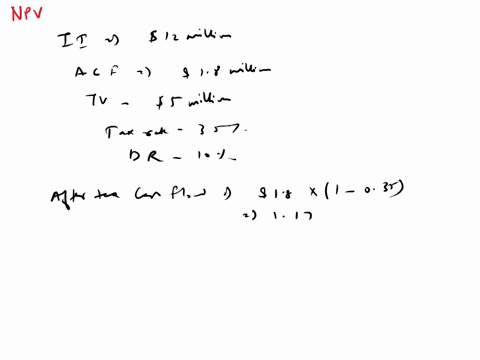 NPV
II => $12 million
ACF => $1.8 million
TV - $5 million
Tax rate - 35%.
DR - 10%
After tax Cash flow => $1.8 x (1-0.35)
=> 1.17